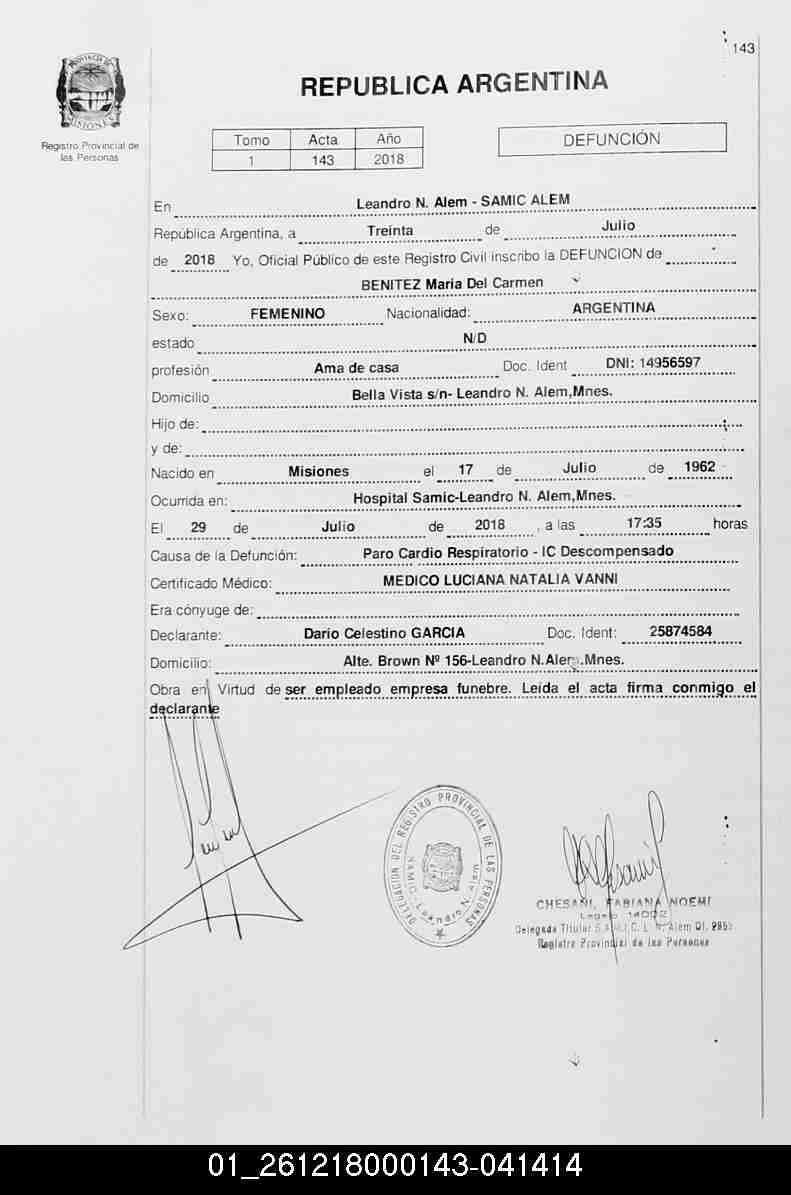 143
PROVINCIA DE
MISIONES
Registro Provincial de
las Personas
REPUBLICA ARGENTINA
Tomo Acta Año
1 143 2018
DEFUNCIÓN
En Leandro N. Alem - SAMIC ALEM
República Argentina, a Treinta de Julio
de 2018 Yo, Oficial Público de este Registro Civil inscribo la DEFUNCION de
BENITEZ Maria Del Carmen
Sexo: FEMENINO Nacionalidad: ARGENTINA
estado N/D
profesión Ama de casa Doc. Ident DNI: 14956597
Domicilio Bella Vista s/n- Leandro N. Alem,Mnes.
Hijo de:
y de:
Nacido en Misiones el 17 de Julio de 1962
Ocurrida en: Hospital Samic-Leandro N. Alem,Mnes.
El 29 de Julio de 2018, a las 17:35 horas
Causa de la Defunción: Paro Cardio Respiratorio - IC Descompensado
Certificado Médico: MEDICO LUCIANA NATALIA VANNI
Era cónyuge de:
Declarante: Dario Celestino GARCIA Doc. Ident: 25874584
Domicilio: Alte. Brown Nº 156-Leandro N.Alem.Mnes.
Obra en Virtud de ser empleado empresa funebre. Leída el acta firma conmigo el
declarante
DELEGACION DEL REGISTRO PROVINCIAL DE LAS PERSONAS
SAMIC - Leandro N. Alem
CHESANI, FABIANA NOEMI
Legajo 14002
Delegada Titular S.A.M.I.C. L. N. Alem Of.
Registro Provincial de las Personas
01_261218000143-041414